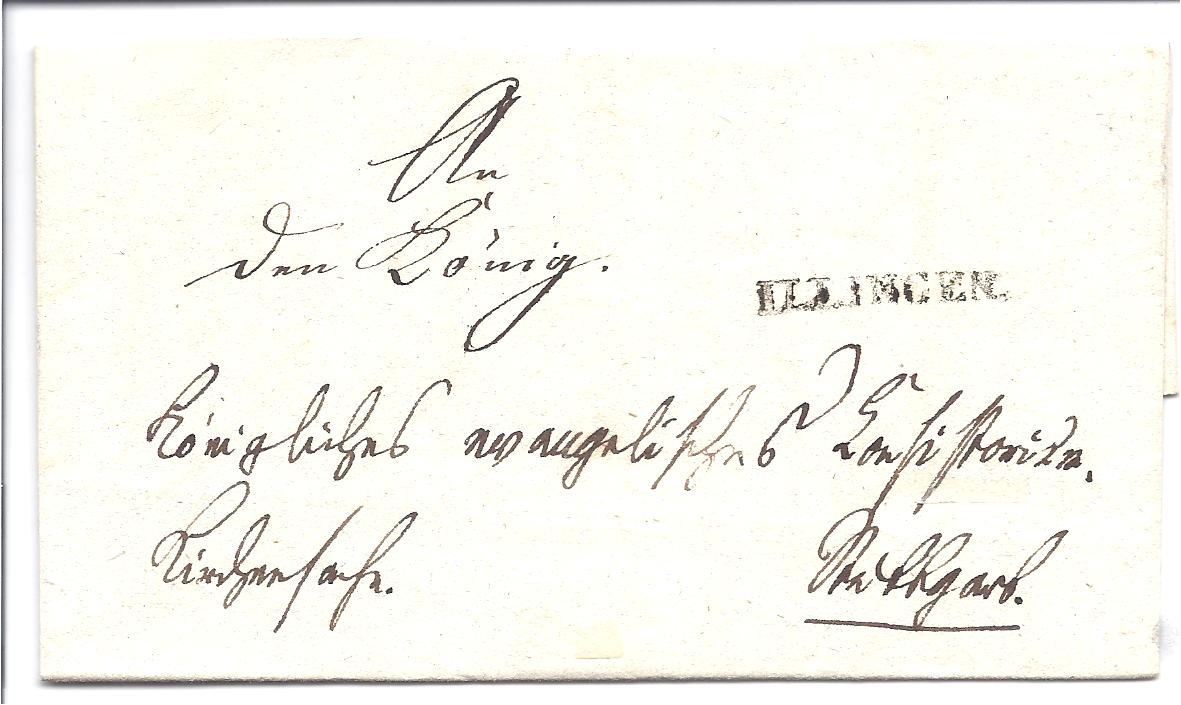 An
den König.
ILLINGEN.
Königliches evangelisches Consistorium.
Kirchensache.
Stuttgart.